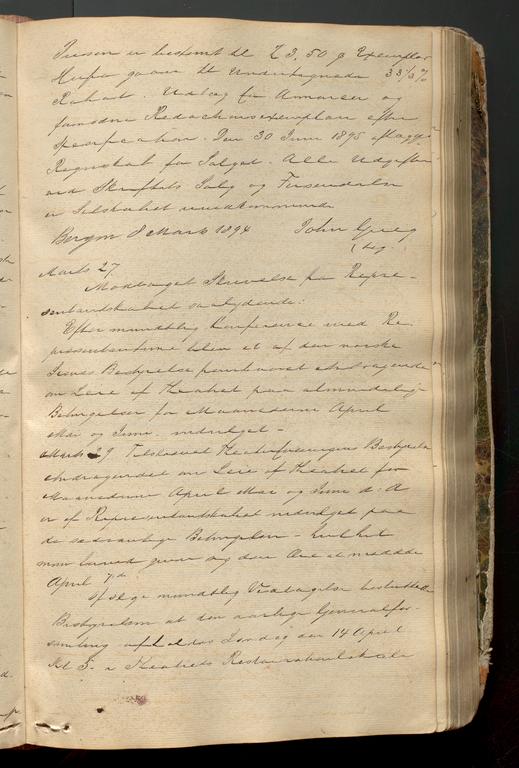 Prisen er bestemt til 2 3,50 pr Exemplar
Herfra gaaer til Undertegnede 33⅓ %
Rabat. Udlæg for Annoncer og
fornødne Redactionsexemplarer efter
Specification. Den 30 Juni 1895 aflægges
Regnskab for Salget. Alle Udgifter
ved Skriftets Salg og Forsendelse
er Selskabet uvedkommende
Bergen 8 Marts 1894 John Grieg
(sig.)
Marts 27.
Modtaget Skrivelse fra Repræ-
sentantskabet saalydende:
Efter mundtlig Conference med Re-
præsentanterne blev et af den norske
Scenes Bestyrelse fremkommet Andragende
om Leie af Theatret paa almindelige
Betingelser for Maanederne April
Mai og Juni indvilget -
Marts 29 Bestyrelse
Andragendet om Leie af Theatret for
Maanederne April Mai og Juni d. A
er af Repræsentantskabet indvilget paa
de sedvanlige Betingelser - hvilket
man herved giver sig den Ære at meddele
April 7de
Ifølge mundtlig Vedtagelse besluttede
Bestyrelsen at den aarlige Generalfor-
samling afholdes Lørdag den 14 April
Kl 5. i Theatrets Restaurationslokale